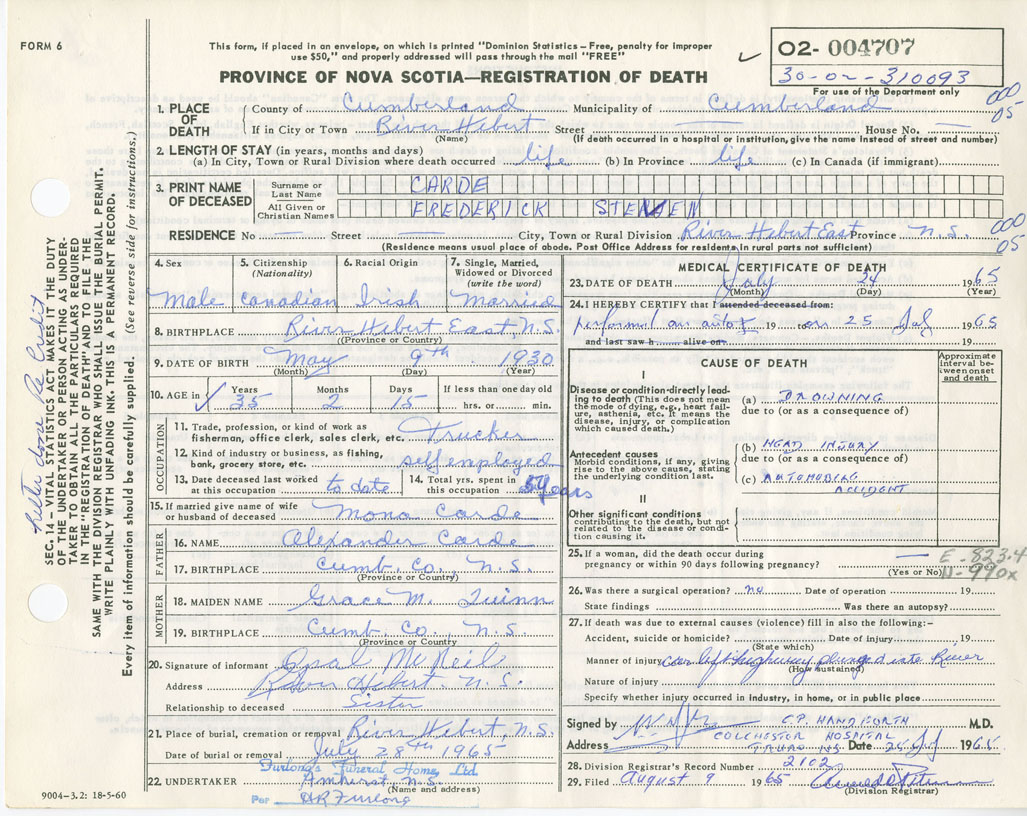 FORM 6
This form, if placed in an envelope, on which is printed "Dominion Statistics – Free, penalty for improper
use $50," and properly addressed will pass through the mail "FREE"
02- 004707
30-02-310093
For use of the Department only
PROVINCE OF NOVA SCOTIA—REGISTRATION OF DEATH
000
05
1. PLACE OF DEATH
County of Cumberland Municipality of Cumberland
If in City or Town River Hebert Street — House No. —
(Name) (If death occurred in a hospital or institution, give the name instead of street and number)
2. LENGTH OF STAY (in years, months and days)
(a) In City, Town or Rural Division where death occurred life (b) In Province life (c) In Canada (if immigrant)
3. PRINT NAME OF DECEASED
Surname or Last Name CARDE
All Given or Christian Names FREDERICK STEVEN
RESIDENCE No — Street — City, Town or Rural Division River Hebert East Province N.S.
(Residence means usual place of abode. Post Office Address for residents in rural parts not sufficient)
000
05
4. Sex 5. Citizenship (Nationality) 6. Racial Origin 7. Single, Married, Widowed or Divorced (write the word)
Male Canadian Irish Married
8. BIRTHPLACE River Hebert East, N.S.
(Province or Country)
9. DATE OF BIRTH May 9th 1930
(Month) (Day) (Year)
10. AGE in Years Months Days If less than one day old
35 2 15 hrs. or min.
OCCUPATION
11. Trade, profession, or kind of work as
fisherman, office clerk, sales clerk, etc. Trucker
12. Kind of industry or business, as fishing,
bank, grocery store, etc. self employed
13. Date deceased last worked at this occupation to date 14. Total yrs. spent in this occupation years
15. If married give name of wife
or husband of deceased Mona Carde
FATHER
16. NAME Alexander Carde
17. BIRTHPLACE Cumb. Co., N.S.
(Province or Country)
MOTHER
18. MAIDEN NAME Grace M. Quinn
19. BIRTHPLACE Cumb. Co., N.S.
(Province or Country)
20. Signature of informant Opal McNeil
Address River Hebert, N.S.
Relationship to deceased Sister
21. Place of burial, cremation or removal River Hebert, N.S.
Date of burial or removal July 28th 1965
Furlong's Funeral Home, Ltd
22. UNDERTAKER Amherst, N.S.
(Name and address)
Per HR Furlong
9004—3.2: 18-5-60
MEDICAL CERTIFICATE OF DEATH
23. DATE OF DEATH July 24 1965
(Month) (Day) (Year)
24. I HEREBY CERTIFY that I attended deceased from:
performed an 19 on 25 1965
and last saw h alive on
CAUSE OF DEATH
Approximate interval between onset and death
I
Disease or condition directly leading to death (This does not mean the mode of dying, e.g., heart failure, asthenia, etc. It means the disease, injury, or complication which caused death.)
(a) DROWNING
due to (or as a consequence of)
Antecedent causes
Morbid conditions, if any, giving rise to the above cause, stating the underlying condition last.
(b) HEAD INJURY
due to (or as a consequence of)
(c) AUTOMOBILE
ACCIDENT
II
Other significant conditions
contributing to the death, but not related to the disease or condition causing it.
25. If a woman, did the death occur during
pregnancy or within 90 days following pregnancy? —
(Yes or No)
E-823.4
N-990X
26. Was there a surgical operation? no Date of operation 19
State findings Was there an autopsy?
27. If death was due to external causes (violence) fill in also the following:-
Accident, suicide or homicide? Date of injury 19
(State which)
Manner of injury car left highway plunged into River
(How sustained)
Nature of injury
Specify whether injury occurred in industry, in home, or in public place
Signed by C.P. HANDFORTH M.D.
COLCHESTER HOSPITAL
Address TRURO NS Date 25 1965
28. Division Registrar's Record Number 2102
29. Filed August 9 1965
(Division Registrar)
SEC. 14 – VITAL STATISTICS ACT MAKES IT THE DUTY
OF THE UNDERTAKER OR PERSON ACTING AS UNDERTAKER TO OBTAIN ALL THE PARTICULARS REQUIRED
IN THE "REGISTRATION OF DEATH" AND TO FILE THE
SAME WITH THE DIVISION REGISTRAR WHO SHALL ISSUE THE BURIAL PERMIT.
WRITE PLAINLY WITH UNFADING INK. THIS IS A PERMANENT RECORD.
Every item of information should be carefully supplied. (See reverse side for instructions.)